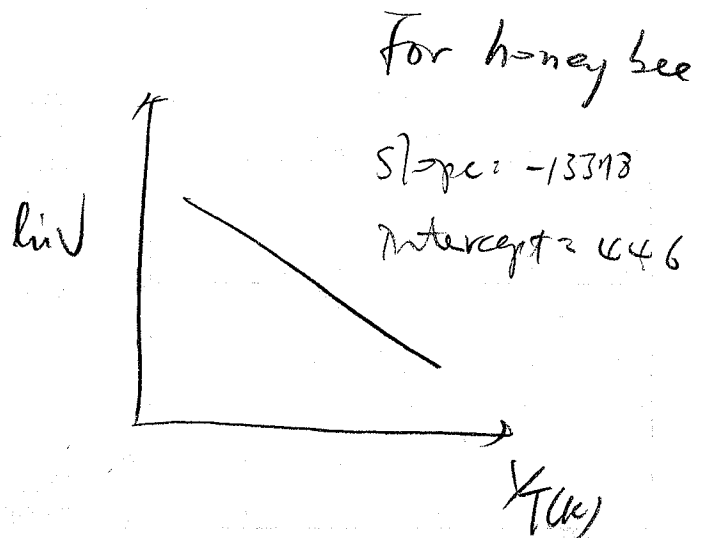 For honey bee
slope: -13378
Intercept = 446
ln V
1/T(K)